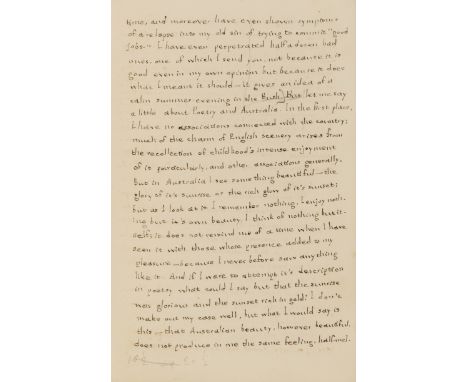 time, and moreover have even shown symptoms
of a relapse into my old sin of trying to commit "good
jobs." I have even perpetrated half a dozen bad
ones, one of which I send you, not because it is
good even in my own opinion but because it does
what I means it should—it gives an idea of a
calm summer evening in the Bush, But let me say
a little about Poetry and Australia. In the first place,
I have no associations connected with the country;
much of the charm of English scenery arises from
the recollection of childhood's intense enjoyment
of it particularly, and other associations generally.
But in Australia I see something beautiful—the
glory of it's sunrise or the rich glow of it's sunset;
but as I look at it I remember nothing, I enjoy noth-
ing but it's own beauty, I think of nothing but it-
self; it does not remind me of a time when I have
seen it with those whose presence added to my
pleasure—because I never before saw anything
like it. And if I were to attempt it's description
in poetry what could I say but that the sunrise
was glorious and the sunset rich in gold? I don't
make out my case well, but what I would say is
this—that Australian beauty, however beautiful,
does not produce in me the same feeling, half mel-